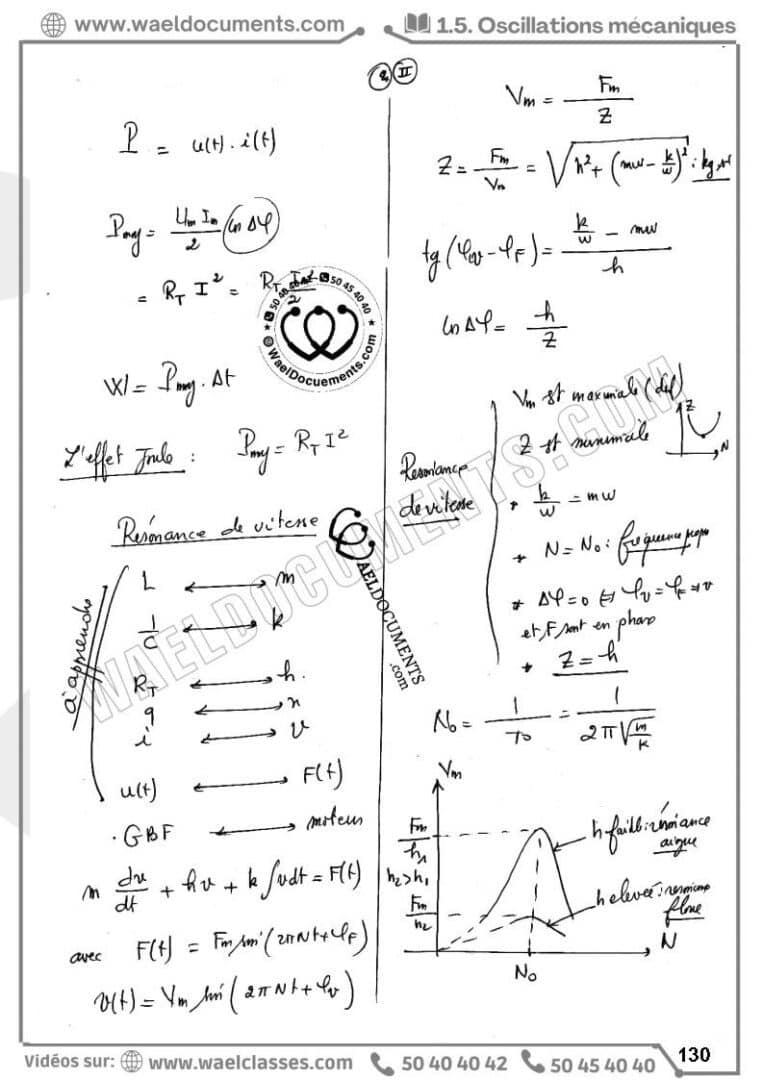 www.waeldocuments.com
1.5. Oscillations mécaniques
2 II
P = u(t) . i(t)
Pmoy = Um Im / 2 cos Δφ
= RT I² = RT Im² / 2
W = Pmoy . Δt
L'effet Joule : Pmoy = RT I²
Resónance de vitesse
à apprendre
L ⟷ m
1/C ⟷ k
RT ⟷ h.
q ⟷ x
i ⟷ v
u(t) ⟷ F(t)
. GBF ⟷ moteur
m dv/dt + hv + k ∫vdt = F(t)
avec F(t) = Fm sin(2πNt + φF)
v(t) = Vm sin(2πNt + φv)
Vm = Fm / Z
Z = Fm / Vm = √(h² + (mw - k/w)²) :
tg(φv - φF) = (k/w - mw) / h
cos Δφ = h / Z
Resonance
de vitesse
Vm est maximale (def)
Z est minimale
Z
N
* k/w = mw
* N = N0 : fréquence propre
* Δφ = 0 ⟺ φv = φF ⟹ v
et F sont en phase
* Z = h
N0 = 1/T0 = 1 / 2π√(m/k)
Vm
Fm/h1
h2>h1
Fm/h2
h faible : résonance
aigue
h elevée : resonance
floue
N
N0
50 40 40 42 50 45 40 40
WaelDocuements.com
WAELDOCUMENTS
.com
WAELDOCUMENTS.COM
Vidéos sur: www.waelclasses.com 50 40 40 42 50 45 40 40
130